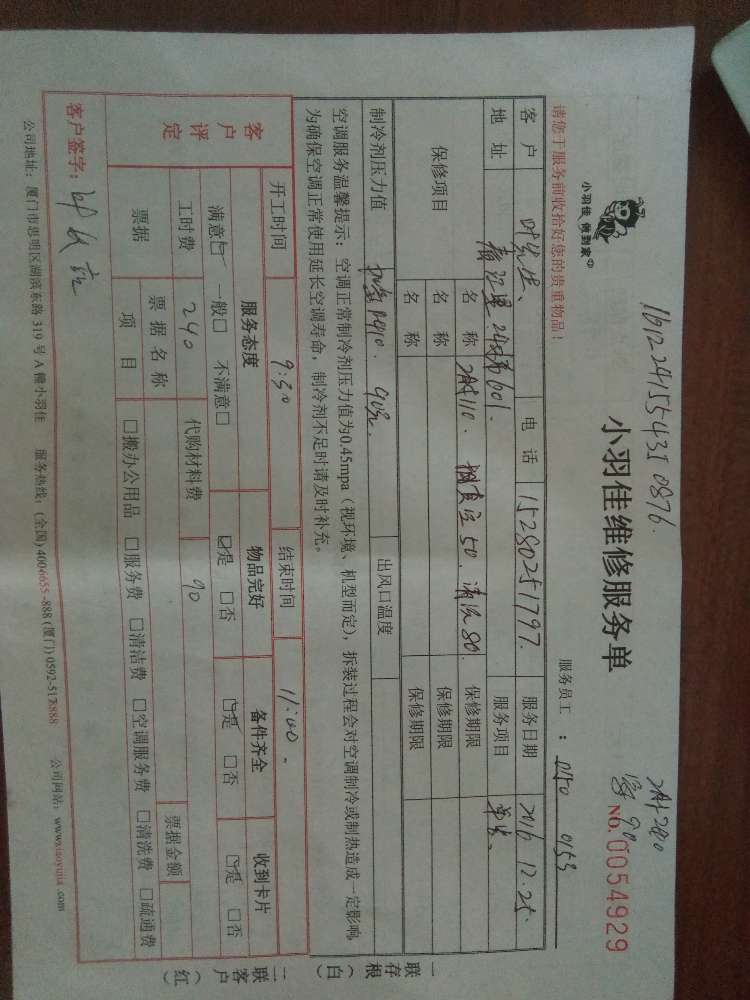 小羽佳 做到家
161224155435 0876.
小羽佳维修服务单
NO.0054929
请您于服务前收拾好您的贵重物品！
服务员工：
0153
客户 叶先生、 电话 15280251797. 服务日期 2016 12.25.
地址 601. 服务项目
保修项目 名称 清洗80. 保修期限
名称 保修期限
名称 保修期限
制冷剂压力值 R410. 90元 出风口温度
空调服务温馨提示：空调正常制冷剂压力值为0.45mpa（视环境、机型而定），拆装过程会对空调制冷或制热造成一定影响
为确保空调正常使用延长空调寿命，制冷剂不足时请及时补充。
开工时间 9:30 结束时间 11:00
客户评定 服务态度 物品完好 备件齐全 收到卡片
满意☑ 一般□ 不满意□ ☑是 □否 ☑是 □否 ☑是 □否
工时费 240 代购材料费 90
票据 票据名称 票据金额
项目 □搬办公用品 □服务费 □清洁费 □空调服务费 □清洗费 □疏通费
客户签字：
公司地址：厦门市思明区湖滨东路 319 号 A 幢小羽佳 服务热线：(全国) 4006655-888 (厦门) 0592-5178888 公司网站：www.xiaoyujia.com
一联存根（白）
二联客户（红）